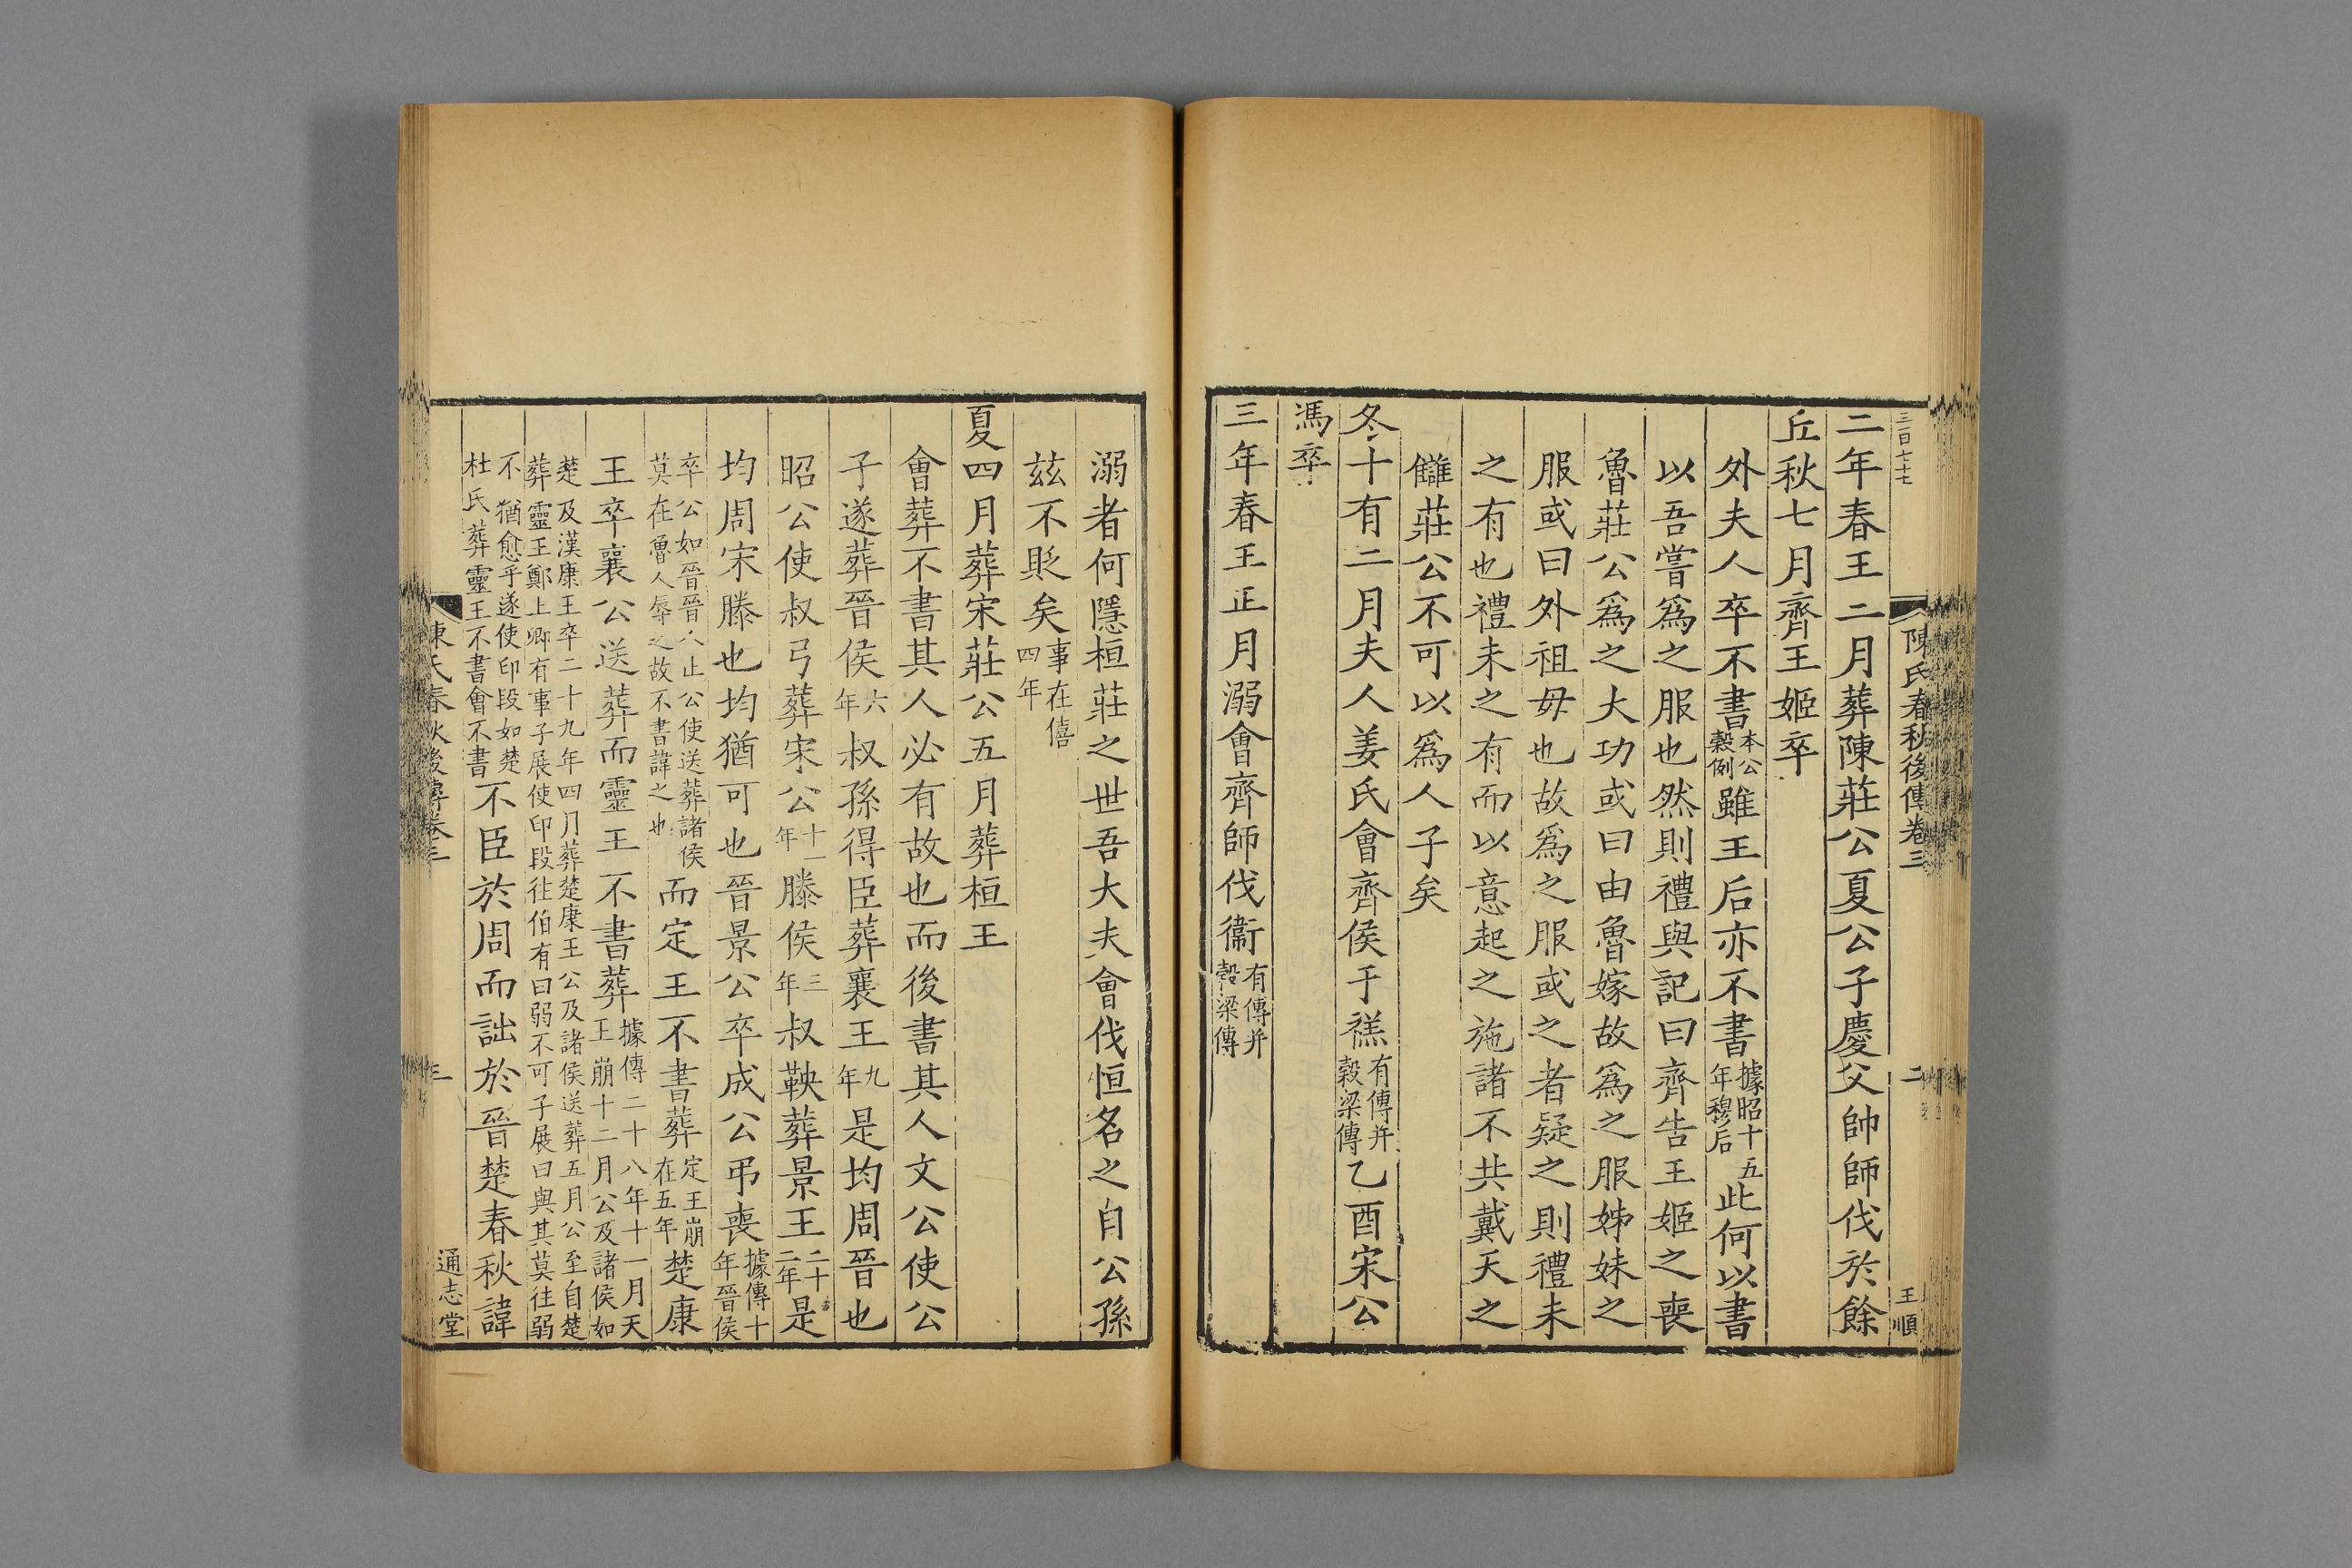 三百七十七 陳氏春秋後傳卷三 二 王順
二年春王二月葬陳莊公夏公子慶父帥師伐於餘
丘秋七月齊王姬卒
外夫人卒不書本公榖例雖王后亦不書據昭十五年穆后此何以書
以吾嘗爲之服也然則禮與記曰齊告王姬之喪
魯莊公爲之大功或曰由魯嫁故爲之服姊妹之
服或曰外祖毋也故爲之服或之者疑之則禮未
之有也禮未之有而以意起之施諸不共戴天之
讎莊公不可以爲人子矣
冬十有二月夫人姜氏會齊侯于禚有傳并榖梁傳乙酉宋公
馮卒
三年春王正月溺會齊師伐衞有傳并榖梁傳
溺者何隱桓莊之世吾大夫會伐恒名之自公孫
茲不貶矣事在僖四年
夏四月葬宋莊公五月葬桓王
會葬不書其人必有故也而後書其人文公使公
子遂葬晉侯六年叔孫得臣葬襄王九年是均周晉也
昭公使叔弓葬宋公十一年滕侯三年叔鞅葬景王二十二年是
均周宋滕也均猶可也晉景公卒成公弔喪據傳十年晉侯
卒公如晉晉人止公使送葬諸侯莫在魯人辱之故不書諱之也而定王不書葬定王崩在五年楚康
王卒襄公送葬而靈王不書葬據傳二十八年十一月天王崩十二月公及諸侯如
楚及漢康王卒二十九年四月葬楚康王公及諸侯送葬五月公至自楚葬靈王鄭上卿有事子展使印段往伯有曰弱不可子展曰與其莫往弱
不猶愈乎遂使印段如楚杜氏葬靈王不書會不書不臣於周而詘於晉楚春秋諱
陳氏春秋後傳卷三 三 通志堂